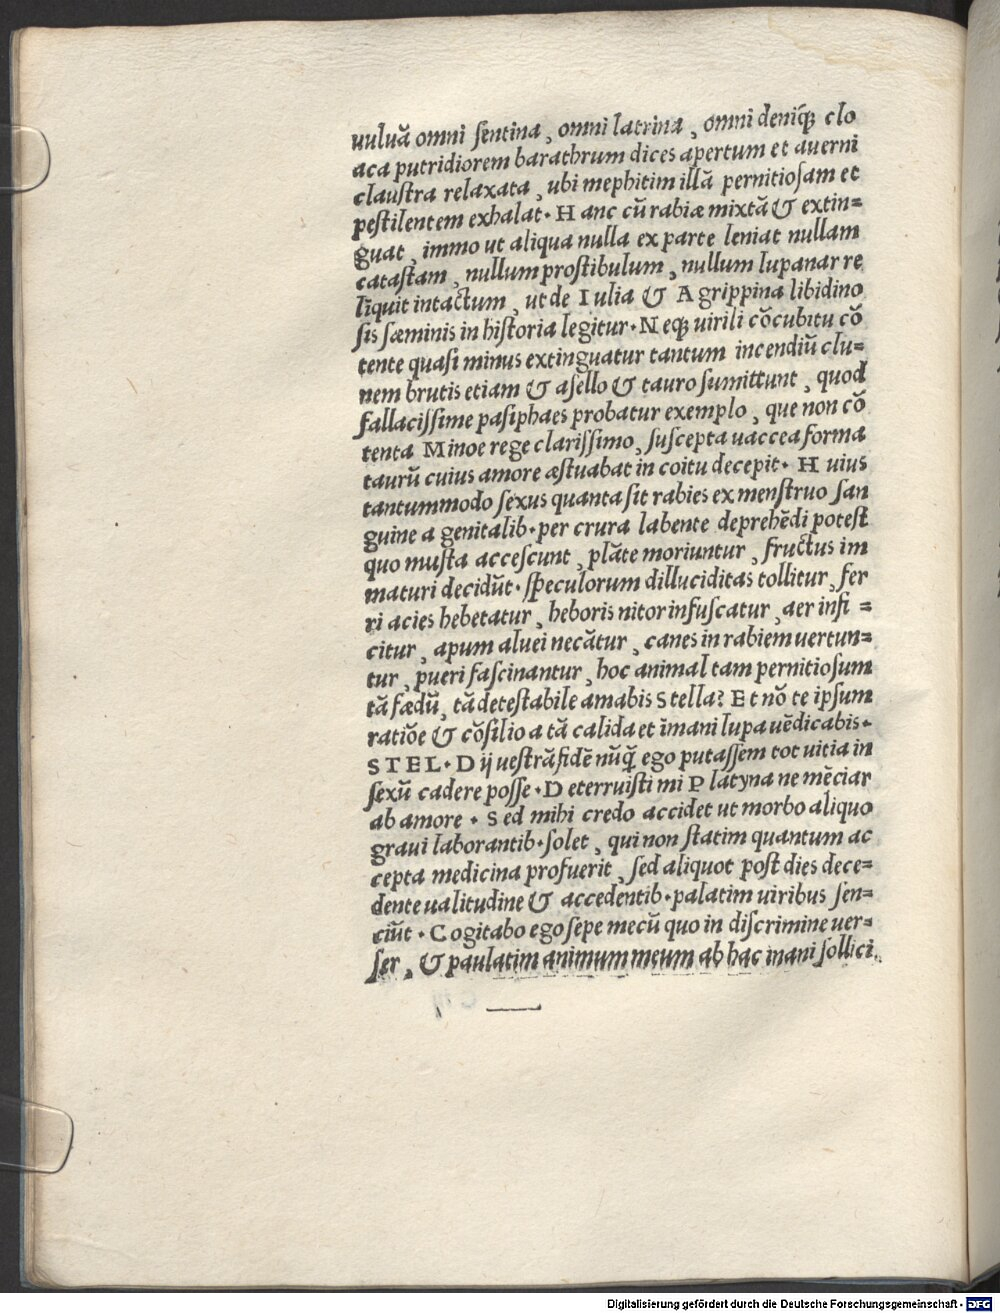 uuluā omni ſentina, omni latrina, omni deniq̃ clo
aca putridiorem barathrum dices apertum et auerni
clauſtra relaxata, ubi mephitim illā pernitioſam et
peſtilentem exhalat. Hanc cū rabiæ mixtā & extin=
guat, immo ut aliqua nulla ex parte leniat nullam
cataſtam, nullum proſtibulum, nullum lupanar re
liquit intactum, ut de Iulia & Agrippina libidino
ſis fæminis in hiſtoria legitur. Neqꝫ uirili cōcubitu cō
tente quaſi minus extinguatur tantum incendiū clu=
nem brutis etiam & aſello & tauro ſumittunt, quod
fallaciſſime paſiphaes probatur exemplo, que non cō
tenta Minoe rege clariſſimo, ſuſcepta uaccea forma
taurū cuius amore æſtuabat in coitu decepit. Huius
tantummodo ſexus quanta ſit rabies ex menſtruo ſan
guine a genitalib. per crura labente deprehēdi poteſt
quo muſta acceſcunt, plāte moriuntur, fructus im
maturi decidūt. ſpeculorum dilluciditas tollitur, fer
ri acies hebetatur, heboris nitor infuſcatur, aer infi=
citur, apum aluei necātur, canes in rabiem uertun=
tur, pueri faſcinantur, hoc animal tam pernitioſum
tā fædū, tā deteſtabile amabis Stella? Et nō te ipſum
ratiōe & cōſilio a tā calida et īmani lupa uēdicabis.
STEL. Dij ueſtrā fidē nūq̃ ego putaſſem tot uitia in
ſexū cadere poſſe. Deterruiſti mi Platyna ne mēciar
ab amore. Sed mihi credo accidet ut morbo aliquo
graui laborantib. ſolet, qui non ſtatim quantum ac
cepta medicina profuerit, ſed aliquot poſt dies dece=
dente ualitudine & accedentib. palatim uiribus ſen=
ciūt. Cogitabo ego ſepe mecū quo in diſcrimine uer=
ſer, & paulatim animum meum ab hac inani ſollici
Digitalisierung gefördert durch die Deutsche Forschungsgemeinschaft - DFG